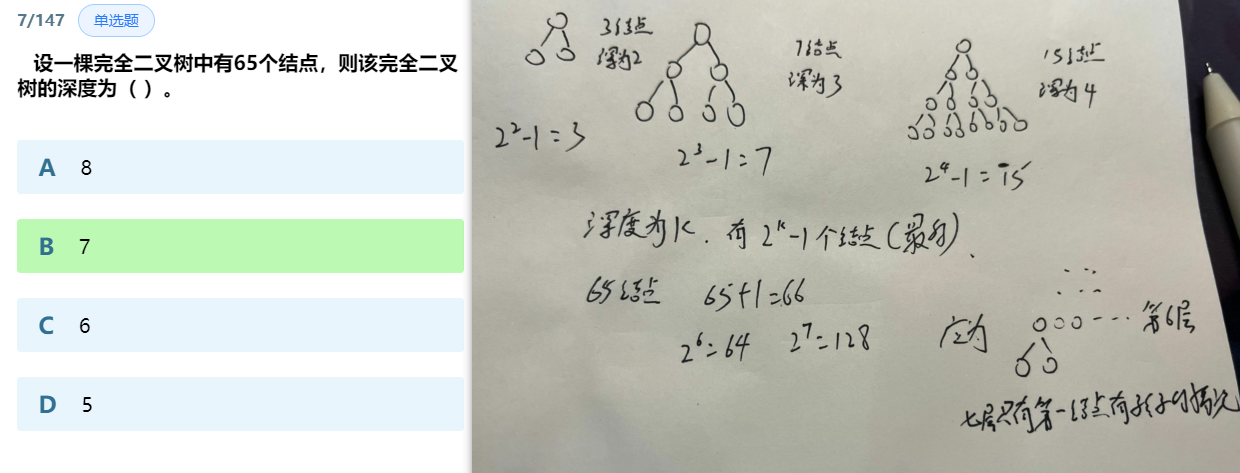 7/147 单选题
设一棵完全二叉树中有65个结点，则该完全二叉
树的深度为（ ）。
A 8
B 7
C 6
D 5
3结点
深为2
7结点
深为3
15结点
深为4
2²-1=3
2³-1=7
2⁴-1=15
深度为K. 有 2ᴷ-1个结点(最多).
65结点 65+1=66
2⁶=64 2⁷=128
应为
第6层
七层只有第一结点有孩子的情况